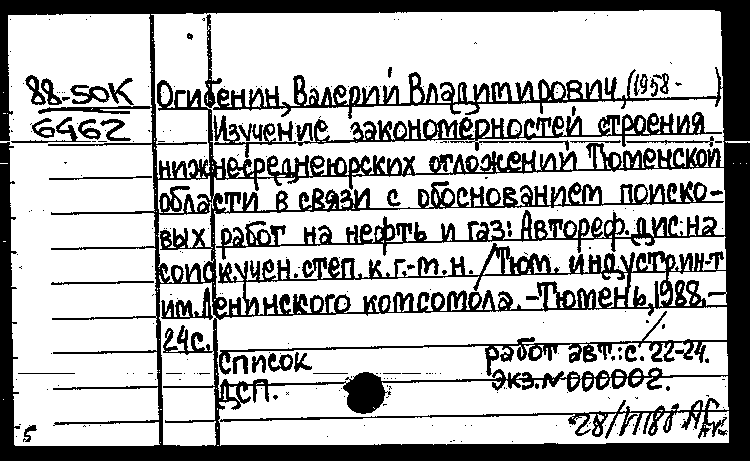 88-50К Огибенин, Валерий Владимирович, (1958- )
6462 Изучение закономерностей строения
нижнесреднеюрских отложений Тюменской
области в связи с обоснованием поиско-
вых работ на нефть и газ: Автореф. дис. на
соиск. учен. степ. к. г.-м. н. / Тюм. индустр. ин-т
им. Ленинского комсомола. - Тюмень, 1988. -
24с.
Список работ авт.: с. 22-24.
ДСП. Экз. № 000002.
5